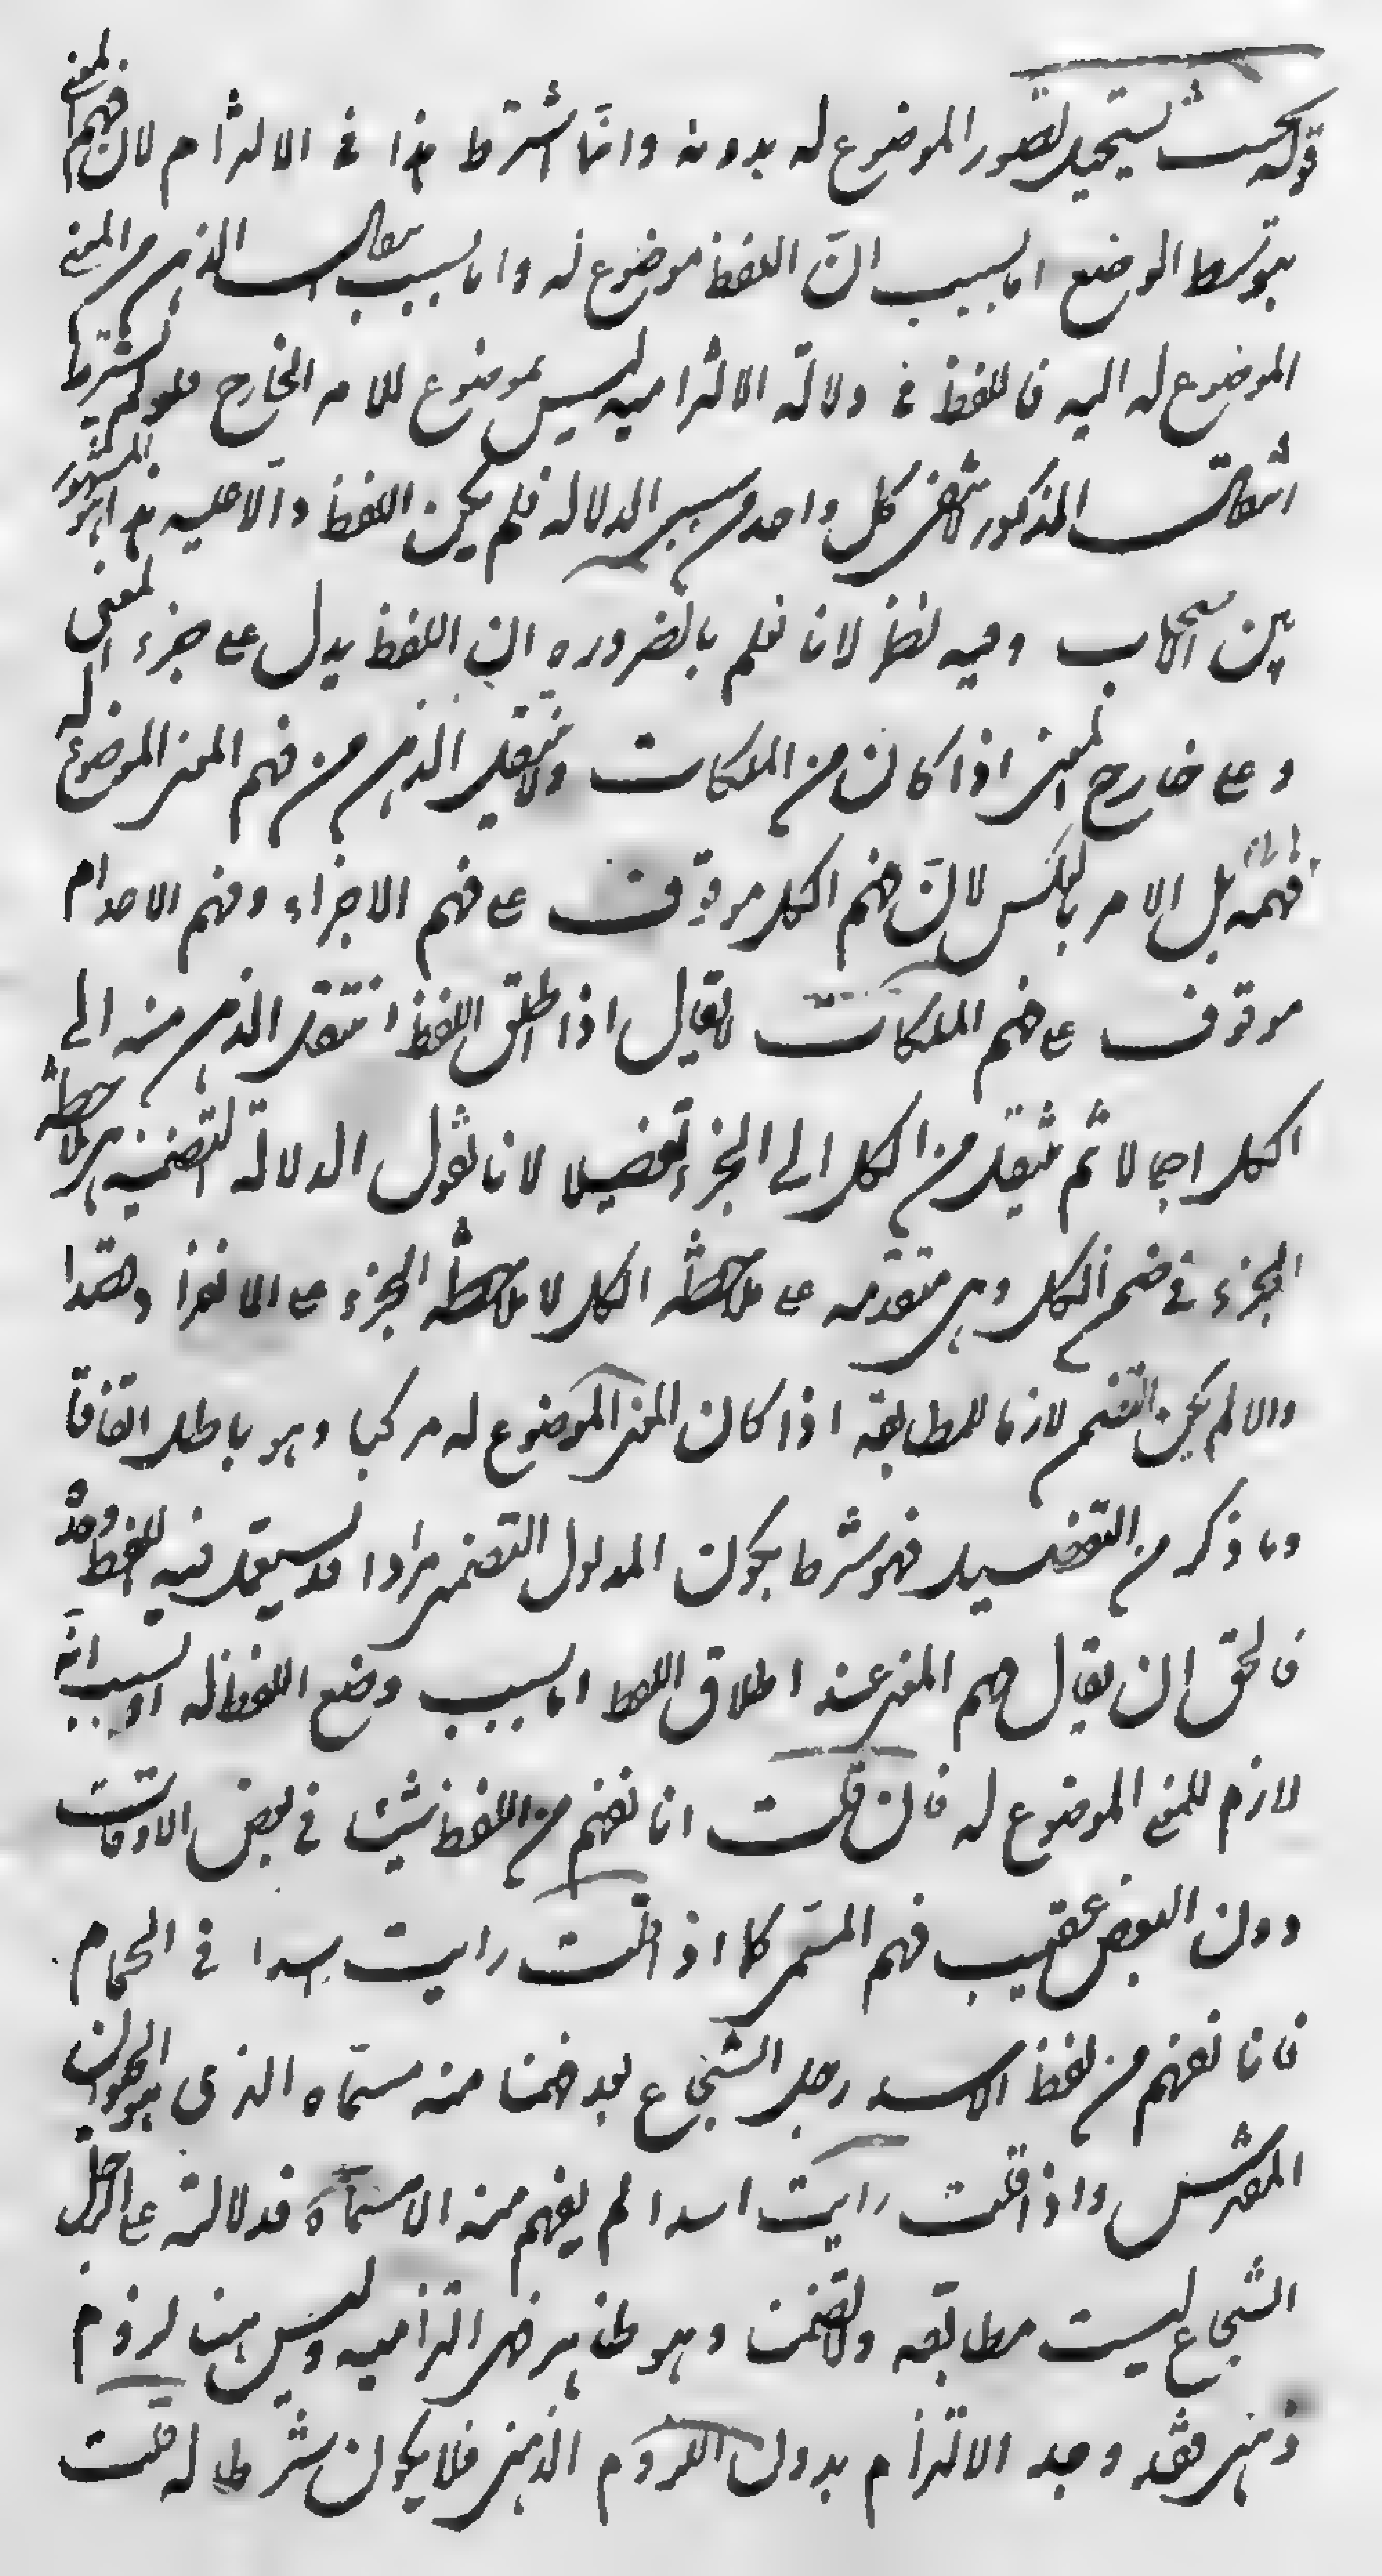 قوله بحيث يستحيل تصور الموضوع له بدونه وانما اشترط هذا فى الالتزام لان فهم المعنى
بتوسط الوضع اما بسبب ان اللفظ موضوع له واما بسبب انتقال الذهن من المعنى
الموضوع له اليه فاللفظ فى دلالة الالتزاميه ليس بموضوع للامر الخارج فلو لم يشترط
انتقال المذكور لانتفى كل واحد من سببى الدلاله فلم يكن اللفظ دالا عليه هذا هو المشهور
بين الاصحاب وفيه نظر لانا نعلم بالضروره ان اللفظ يدل على جزء المعنى
وعلى خارج المعنى اذا كان من الملكات ولا ينتقل الذهن من فهم المعنى الموضوع له
فهمه بل الامر بالعكس لان فهم الكل موقوف على فهم الاجزاء وفهم الاعدام
موقوف على فهم الملكات لا يقال اذا اطلق اللفظ انتقل الذهن منه الى
الكل اجمالا ثم ينتقل من الكل الى الجزء تفصيلا لانا نقول الدلالة التضمنيه هى ملاحظة
الجزء فى ضمن الكل وهى متقدمه على ملاحظة الكل لا ملاحظة الجزء على الانفراد
والا لم يكن التضمن لازما للمطابقه اذا كان المعنى الموضوع له مركبا وهو باطل اتفاقا
وما ذكر من التفصيل فهو شرط لكون المدلول التضمنى مرادا قد يستعمل فيه اللفظ وحده
فالحق ان يقال فهم المعنى عند اطلاق اللفظ اما بسبب وضع اللفظ له او بسبب انه
لازم للمعنى الموضوع له فان قلت انا نفهم من اللفظ شيئا فى بعض الاوقات
دون البعض عقيب فهم المسمى كما اذا قلت رايت اسدا فى الحمام
فانا نفهم من لفظ الاسد رجل الشجاع بعد فهمنا منه مسماه الذى هو الحيوان
المفترس واذا قلت رايت اسدا لم يفهم منه الا مسماه فدلالته على الرجل
الشجاع ليست مطابقه ولا تضمنا وهو ظاهر فهى التزاميه وليس هنا لزوم
ذهنى فقد وجد الالتزام بدون اللزوم الذهنى فلا يكون شرطا له قلت